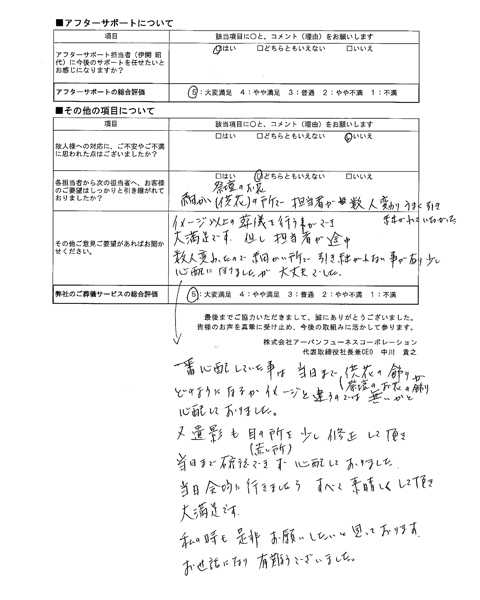 ■アフターサポートについて
項目
該当項目に○と、コメント（理由）をお願いします
アフターサポート担当者（伊関 昭
代）に今後のサポートを任せたいと
お感じになりますか？
□はい □どちらともいえない □いいえ
アフターサポートの総合評価
5：大変満足 4：やや満足 3：普通 2：やや不満 1：不満
■その他の項目について
項目
該当項目に○と、コメント（理由）をお願いします
故人様への対応に、ご不安やご不満
に思われた点はございましたか？
□はい □どちらともいえない □いいえ
各担当者から次の担当者へ、お客様
のご要望はしっかりと引き継がれて
おりましたか？
□はい □どちらともいえない □いいえ
祭壇のお花
細かい（供花）の所で 担当者が 数人変わり うまく引き
継がれていなかった
その他ご意見ご要望があればお聞か
せください。
イメージ以上の葬儀を行う事ができ
大満足です。但し 担当者が途中
数人変わったので 細かい所で 引き継がれない事があり少し
心配になりましたが 大丈夫でした。
弊社のご葬儀サービスの総合評価
5：大変満足 4：やや満足 3：普通 2：やや不満 1：不満
最後までご協力いただきまして、誠にありがとうございました。
皆様のお声を真摯に受け止め、今後の取組みに活かして参ります。
株式会社アーバンフューネスコーポレーション
代表取締役社長兼CEO 中川 貴之
一番心配していた事は 当日まで 供花の飾りが
（祭壇のお花の飾り
どのようになるか イメージと違うのでは無いかと
心配しておりました。
又 遺影も 目の所を 少し 修正して頂き
（赤い所）
当日まで確認できず 心配しておりました。
当日会場に行きましたら すべて 素晴しくして頂き
大満足です。
私の時も 是非 お願いしたいと思っております。
お世話になり 有難うございました。